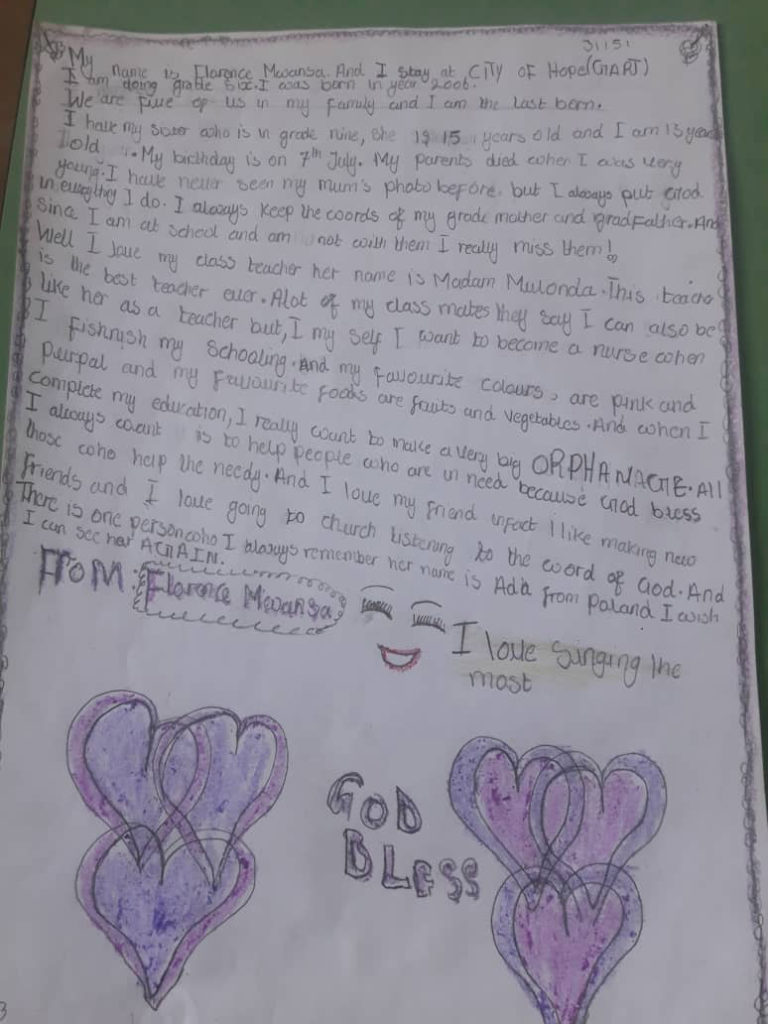 31151
My name is Florence Mwansa. And I stay at CITY OF HOPE(GIAPT)
I am doing grade six. I was born in year 2006.
We are five of us in my family and I am the last born.
I have my sister who is in grade nine, she is 15 years old and I am 13 years
old. My birthday is on 7th July. My parents died when I was very
young. I have never seen my mum's photo before. but I always put God
in everything I do. I always keep the words of my grade mother and gradfather. And
since I am at school and am not with them I really miss them!
Well I love my class teacher her name is Madam Mulonda. This teache
is the best teacher ever. Alot of my class mates they say I can also be
like her as a teacher but, I my self I want to become a nurse when
I fishnish my schooling. And my favourite colours, are pink and
purpal and my favourite foods are fruits and vegetables. And when I
complete my education, I really want to make a very big ORPHANAGE. All
I always want is to help people who are in need because God bless
those who help the needy. And I love my friend infact I like making new
friends and I love going to church listening to the word of God. And
There is one person who I always remember her name is Ada from Poland I wish
I can see her AGAIN.
From Florence Mwansa
I love singing the
most
GOD
BLESS
3